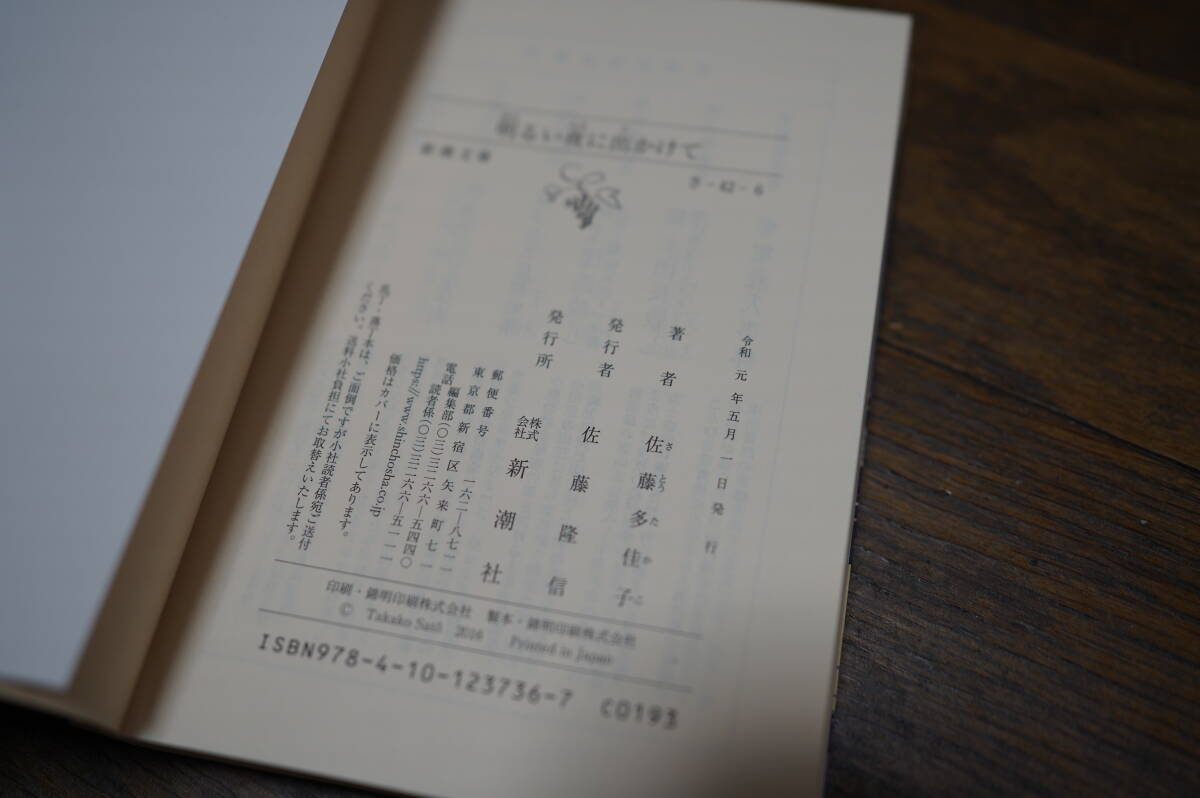 明るい夜に出かけて
新潮文庫
さ-42-6
令和元年五月一日発行
著者 佐藤多佳子
さとうたかこ
発行者 佐藤隆信
発行所 株式会社 新潮社
郵便番号 一六二―八七一一
東京都新宿区矢来町七一
電話編集部(〇三)三二六六―五四四〇
読者係(〇三)三二六六―五一一一
https://www.shinchosha.co.jp
価格はカバーに表示してあります。
乱丁・落丁本は、ご面倒ですが小社読者係宛ご送付
ください。送料小社負担にてお取替えいたします。
印刷・錦明印刷株式会社 製本・錦明印刷株式会社
© Takako Satô 2016 Printed in Japan
ISBN978-4-10-123736-7 C0193